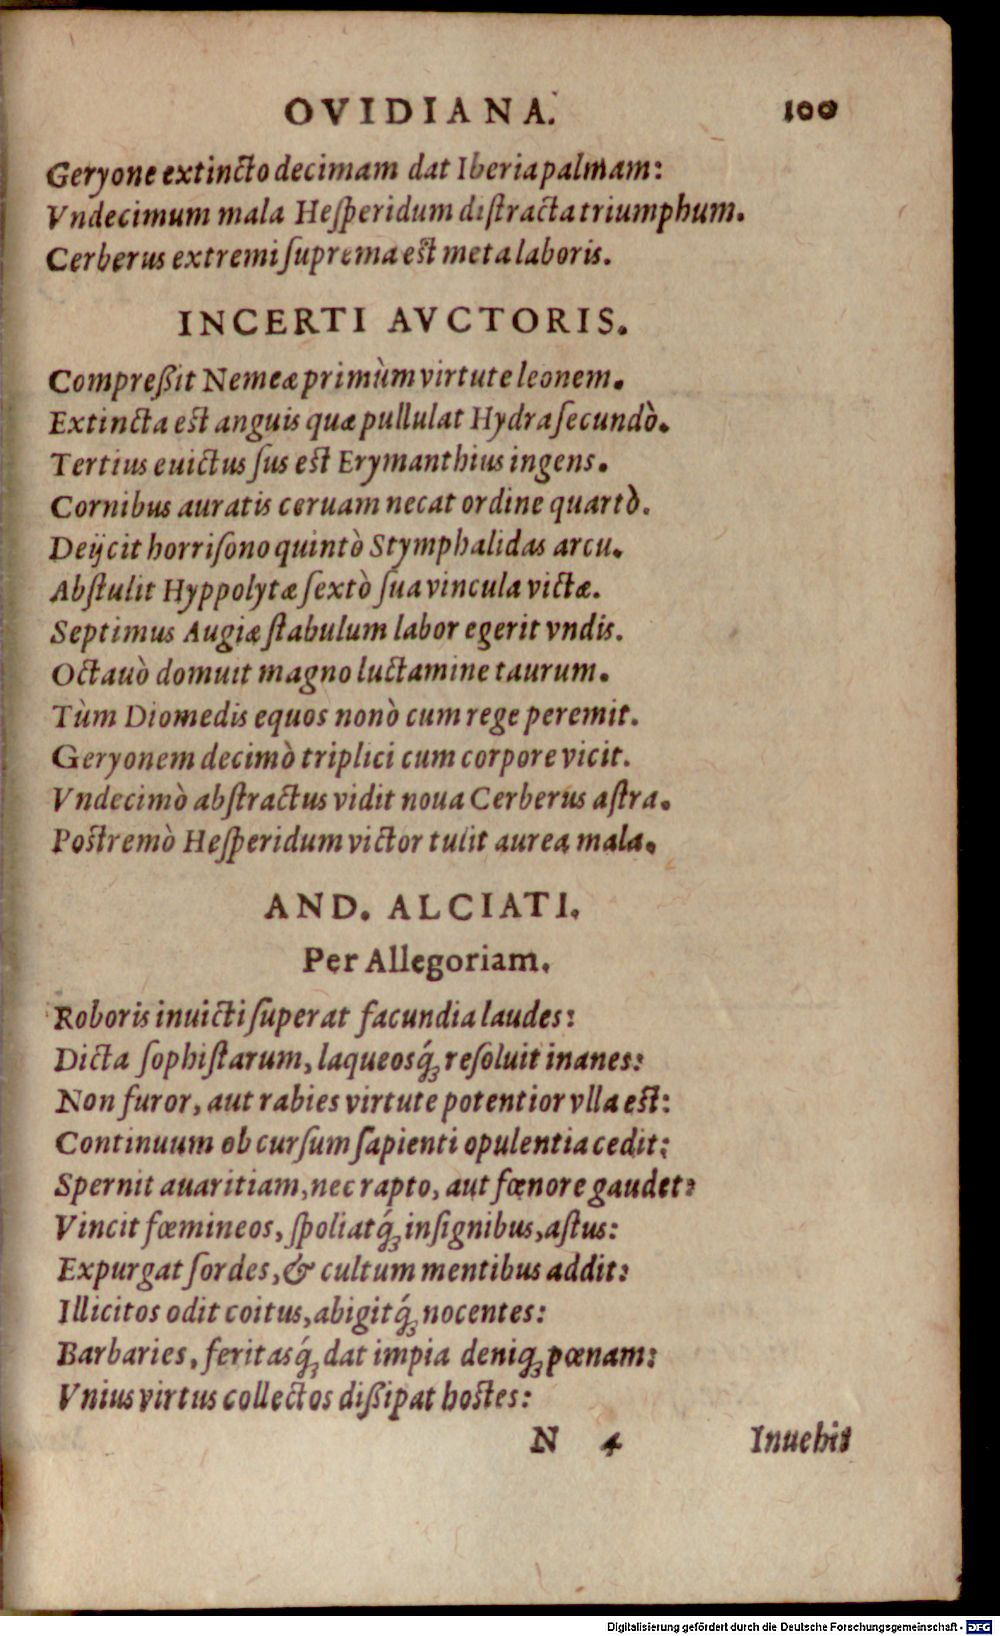 OVIDIANA. 100
Geryone extincto decimam dat Iberia palmam:
Vndecimum mala Heſperidum diſtracta triumphum.
Cerberus extremi ſuprema est meta laboris.
INCERTI AVCTORIS.
Compreßit Nemeæ primùm virtute leonem.
Extincta est anguis quæ pullulat Hydra ſecundò.
Tertius euictus ſus est Erymanthius ingens.
Cornibus auratis ceruam necat ordine quartò.
Deijcit horriſono quintò Stymphalidas arcu.
Abſtulit Hyppolytæ ſextò ſua vincula victæ.
Septimus Augiæ ſtabulum labor egerit vndis.
Octauò domuit magno luctamine taurum.
Tùm Diomedis equos nonò cum rege peremit.
Geryonem decimò triplici cum corpore vicit.
Vndecimò abſtractus vidit noua Cerberus aſtra.
Postremò Heſperidum victor tulit aurea mala.
AND. ALCIATI.
Per Allegoriam.
Roboris inuicti ſuperat facundia laudes:
Dicta ſophiſtarum, laqueosq́ꝫ reſoluit inanes:
Non furor, aut rabies virtute potentior vlla est:
Continuum ob curſum ſapienti opulentia cedit:
Spernit auaritiam, nec rapto, aut fœnore gaudet:
Vincit fœmineos, ſpoliatq́ꝫ inſignibus, aſtus:
Expurgat ſordes, & cultum mentibus addit:
Illicitos odit coitus, abigitq́ꝫ nocentes:
Barbaries, feritasq́ꝫ dat impia deniqꝫ pœnam:
Vnius virtus collectos dißipat hostes:
N 4 Inuehit
Digitalisierung gefördert durch die Deutsche Forschungsgemeinschaft - DFG